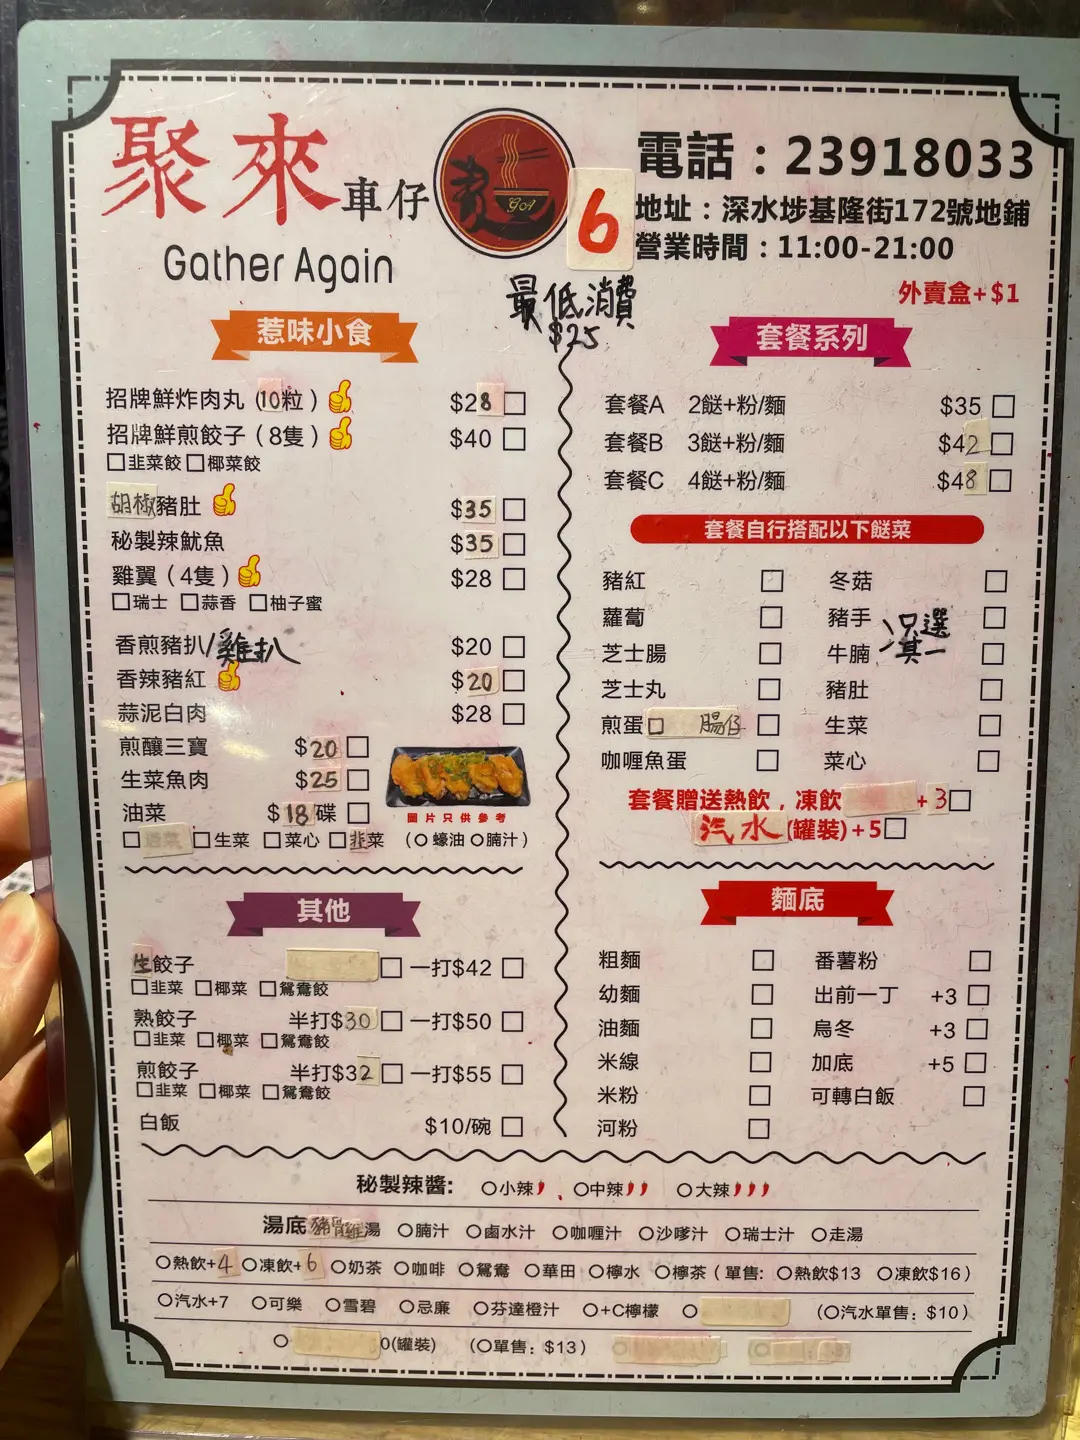 聚來車仔
Gather Again
GA
6
電話：23918033
地址：深水埗基隆街172號地鋪
營業時間：11:00-21:00
外賣盒+$1
最低消費
$25
惹味小食
招牌鮮炸肉丸（10粒） $28
招牌鮮煎餃子（8隻） $40
韭菜餃 椰菜餃
胡椒豬肚 $35
秘製辣魷魚 $35
雞翼（4隻） $28
瑞士 蒜香 柚子蜜
香煎豬扒/雞扒 $20
香辣豬紅 $20
蒜泥白肉 $28
煎釀三寶 $20
生菜魚肉 $25
油菜 $18碟
圖片只供參考
生菜 菜心 韭菜 （蠔油 腩汁）
其他
生餃子 一打$42
韭菜 椰菜 鴛鴦餃
熟餃子 半打$30 一打$50
韭菜 椰菜 鴛鴦餃
煎餃子 半打$32 一打$55
韭菜 椰菜 鴛鴦餃
白飯 $10/碗
套餐系列
套餐A 2餸+粉/麵 $35
套餐B 3餸+粉/麵 $42
套餐C 4餸+粉/麵 $48
套餐自行搭配以下餸菜
豬紅 冬菇
蘿蔔 豬手
芝士腸 牛腩
只選其一
芝士丸 豬肚
煎蛋 腸仔 生菜
咖喱魚蛋 菜心
套餐贈送熱飲，凍飲 +3
汽水(罐裝)+5
麵底
粗麵 番薯粉
幼麵 出前一丁 +3
油麵 烏冬 +3
米線 加底 +5
米粉 可轉白飯
河粉
秘製辣醬: 小辣 、 中辣 大辣
湯底 豬骨雞湯 腩汁 鹵水汁 咖喱汁 沙嗲汁 瑞士汁 走湯
熱飲+4 凍飲+6 奶茶 咖啡 鴛鴦 華田 檸水 檸茶（單售: 熱飲$13 凍飲$16）
汽水+7 可樂 雪碧 忌廉 芬達橙汁 +C檸檬 （汽水單售：$10）
0(罐裝) （單售：$13）